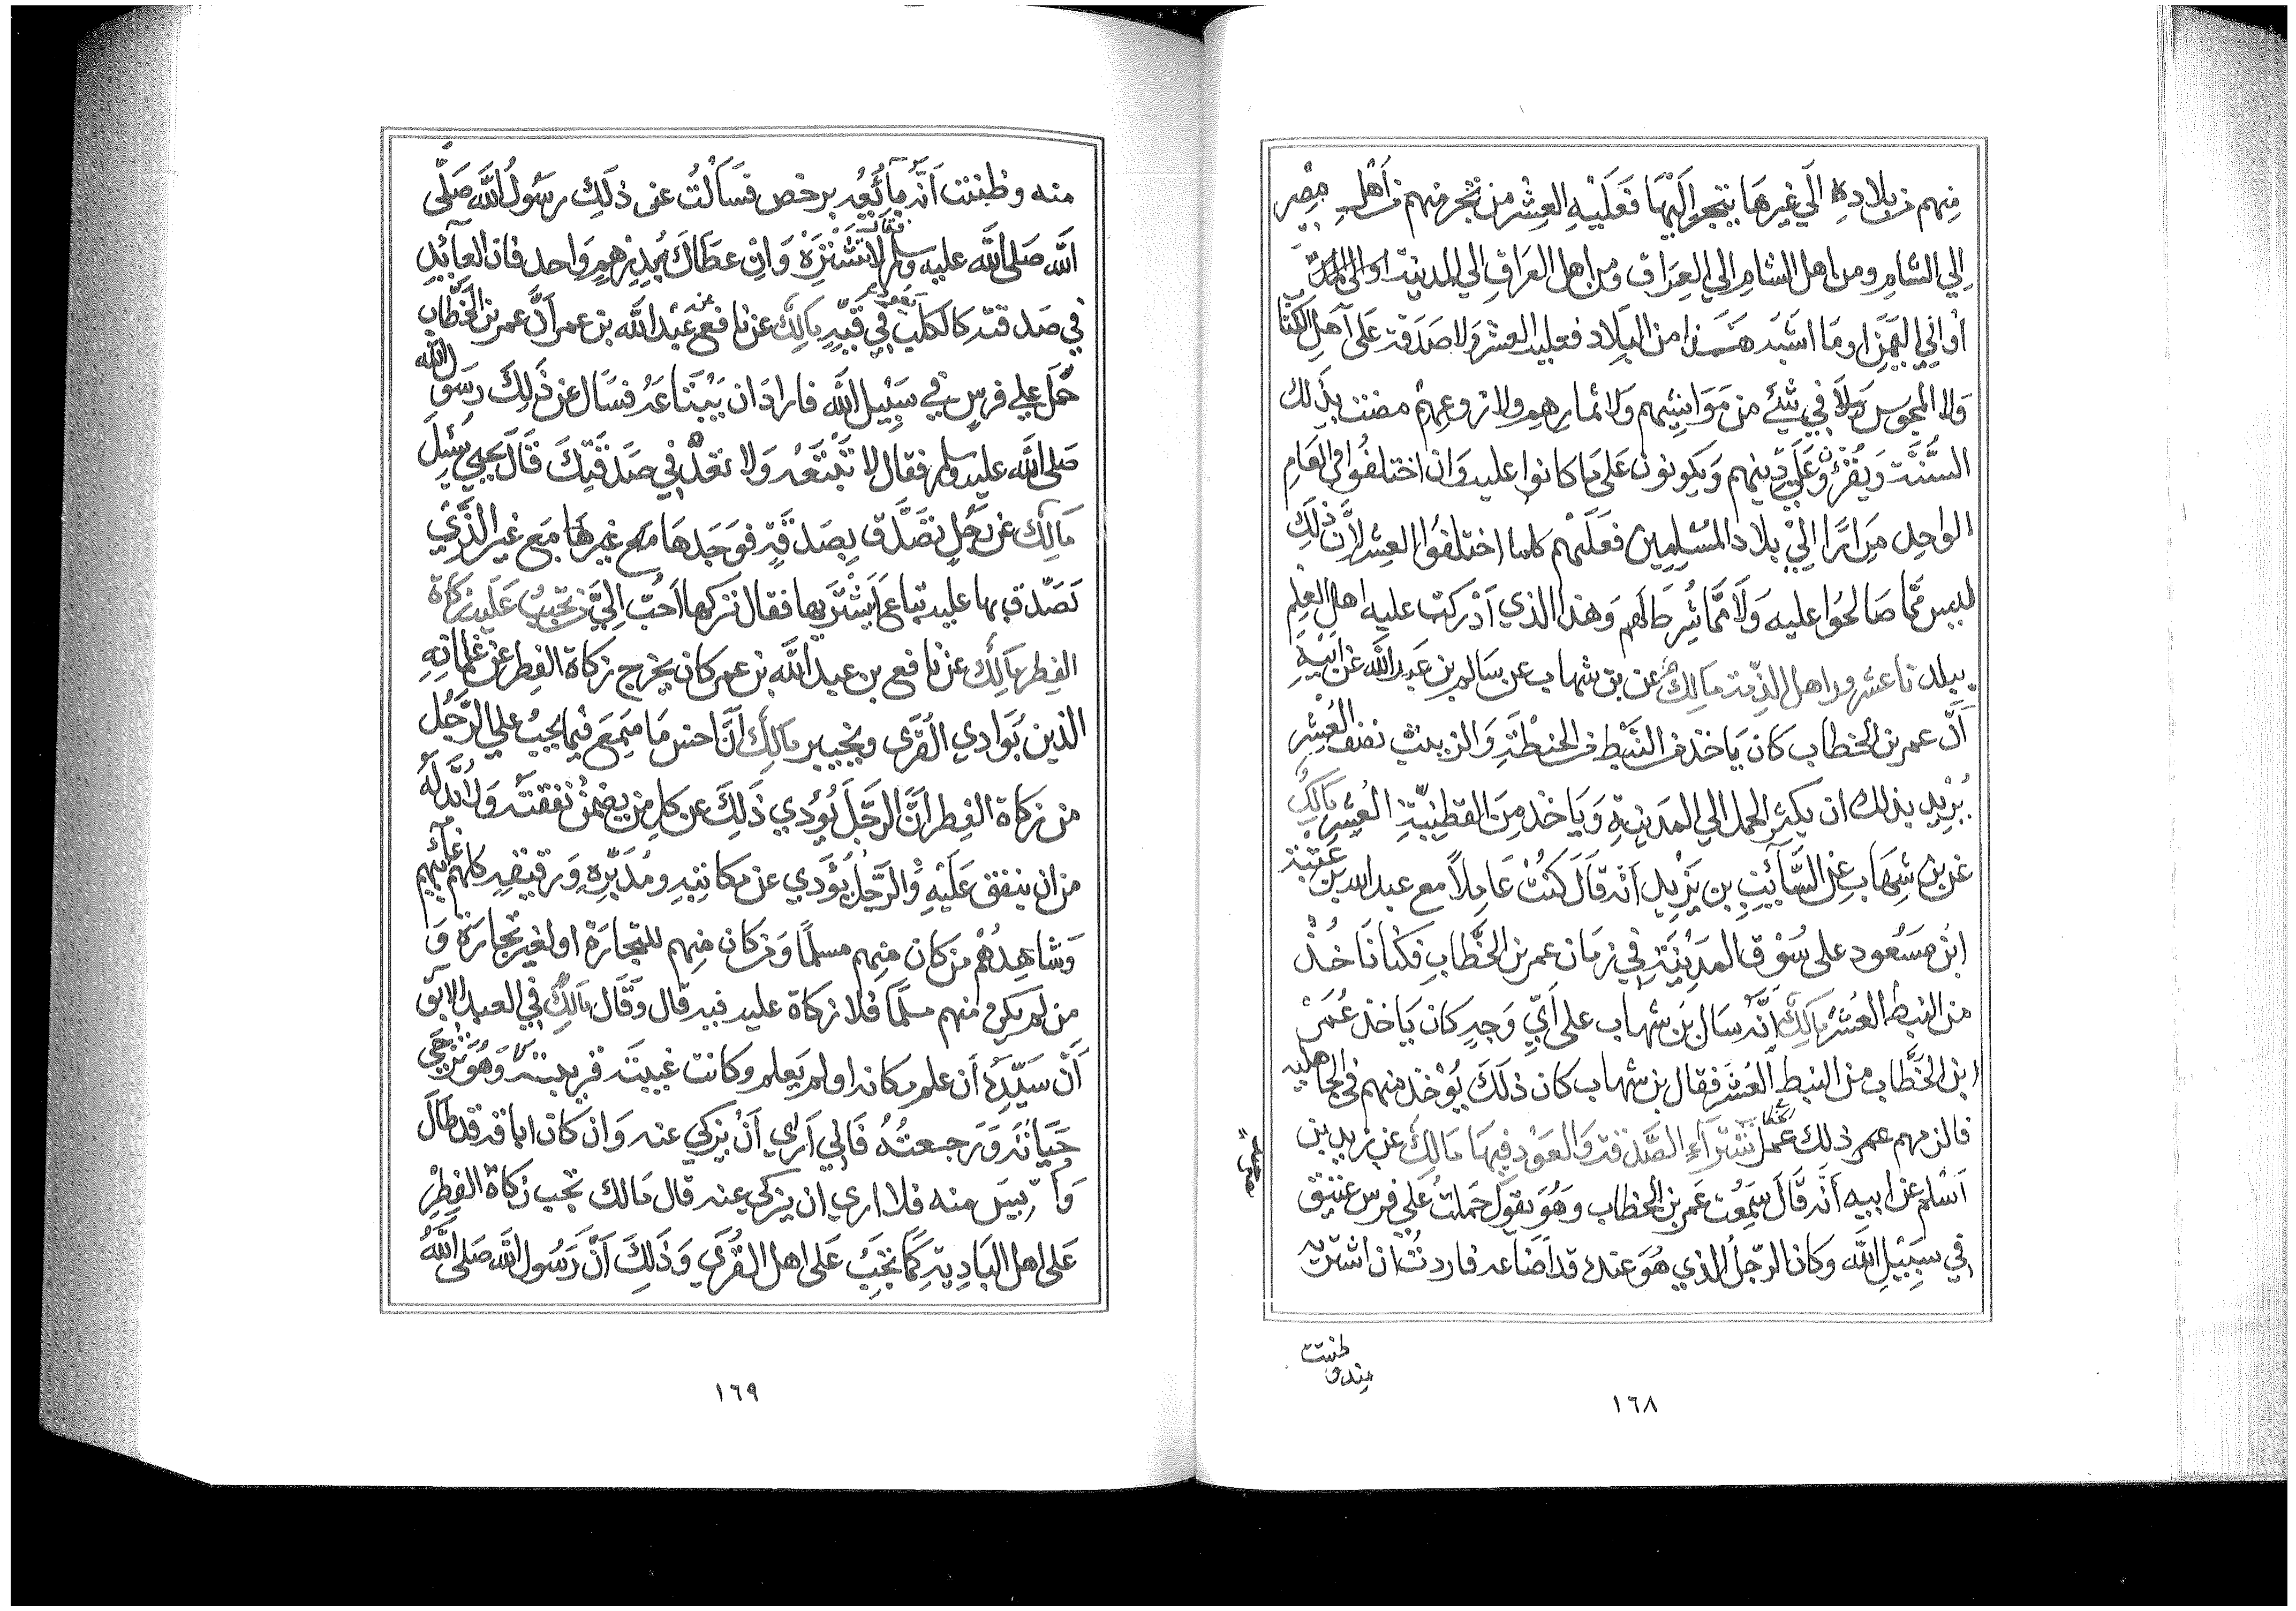 منهم من بلاده الي غيرها يتجر اليها فعليه العشر من تجر منهم من أهل مصر
الي الشام ومن اهل الشام الي العراق ومن اهل العراق الي المدينة
أو الي اليمن او ما اشبه هذا من البلاد فعليه العشر ولا صدقة على أهل الكتاب
ولا المجوس في شئ من مواشيهم ولا ثمارهم ولا زروعهم مضت بذلك
السنة ويقرون على دينهم ويكونون على ما كانوا عليه وان اختلفوا في العام
الواحد مرارا الي بلاد المسلمين فعليهم كلما اختلفوا العشر لأن ذلك
ليس مما صالحوا عليه ولا مما شرط لهم وهذا الذي أدركت عليه اهل العلم
ببلدنا عشور اهل الذمة مالك عن بن شهاب عن سالم بن عبد الله عن ابيه
أن عمر بن الخطاب كان ياخذ من النبط من الحنطة والزيت نصف العشر
يريد بذلك ان يكثر الحمل الي المدينة وياخذ من القطنية العشر مالك
عن بن شهاب عن السائب بن يزيد أنه قال كنت عاملا مع عبد الله بن عتبة
ابن مسعود على سوق المدينة في زمان عمر بن الخطاب فكنا ناخذ
من النبط العشر مالك أنه سال بن شهاب على أي وجه كان ياخذ عمر
ابن الخطاب من النبط العشر فقال بن شهاب كان ذلك يؤخذ منهم في الجاهلية
فالزمهم عمر ذلك اشتراء الصدقة والعود فيها مالك عن زيد بن
أسلم عن ابيه أنه قال سمعت عمر بن الخطاب وهو يقول حملت علي فرس عتيق
في سبيل الله وكان الرجل الذي هو عنده قد أضاعه فاردت أن اشتريه
منه وظننت
١٦٨
منه وظننت أنه بائعه برخص فسألت عن ذلك رسول الله صلى
الله صلى الله عليه وسلم فقال لا تشتره وان عطاكه بدرهم واحد فان العائد
في صدقته كالكلب يعود في قيئه مالك عن نافع عن عبد الله بن عمر أن عمر بن الخطاب
حمل علي فرس في سبيل الله فاراد ان يبتاعه فسال عن ذلك رسول الله
صلى الله عليه وسلم فقال لا تبتعه ولا تعد في صدقتك قال يحيي سئل
مالك عن رجل تصدق بصدقة فوجدها مع غيرها مع غير الذي
تصدق بها عليه تباع أيشتريها فقال تركها أحب الي من تجب عليه زكاة
الفطر مالك عن نافع بن عبد الله بن عمر كان يخرج زكاة الفطر عن غلمانه
الذين بوادي القرى وبخيبر مالك أن احسن ما سمع فيما يجب علي الرجل
من زكاة الفطر أن الرجل يؤدي ذلك عن كل من يضمن نفقته ولا بد له
من ان ينفق عليه والرجل يؤدي عن مكاتبه ومدبره ورقيقه كلهم غائبهم
وشاهدهم من كان منهم مسلما ومن كان منهم للتجارة او لغير تجارة و
من لم يكن منهم مسلما فلا زكاة عليه فيه قال وقال مالك في العبد الآبق
أن سيده أن علم مكانه او لم يعلم وكانت غيبته قريبة وهو ترجى
حياته ورجعته فاني أرى أن يزكي عنه وان كان اباقه قد طال
وأيس منه فلا اري ان يزكي عنه قال مالك تجب زكاة الفطر
على اهل البادية كما تجب على اهل القرى وذلك أن رسول الله صلى الله
١٦٩